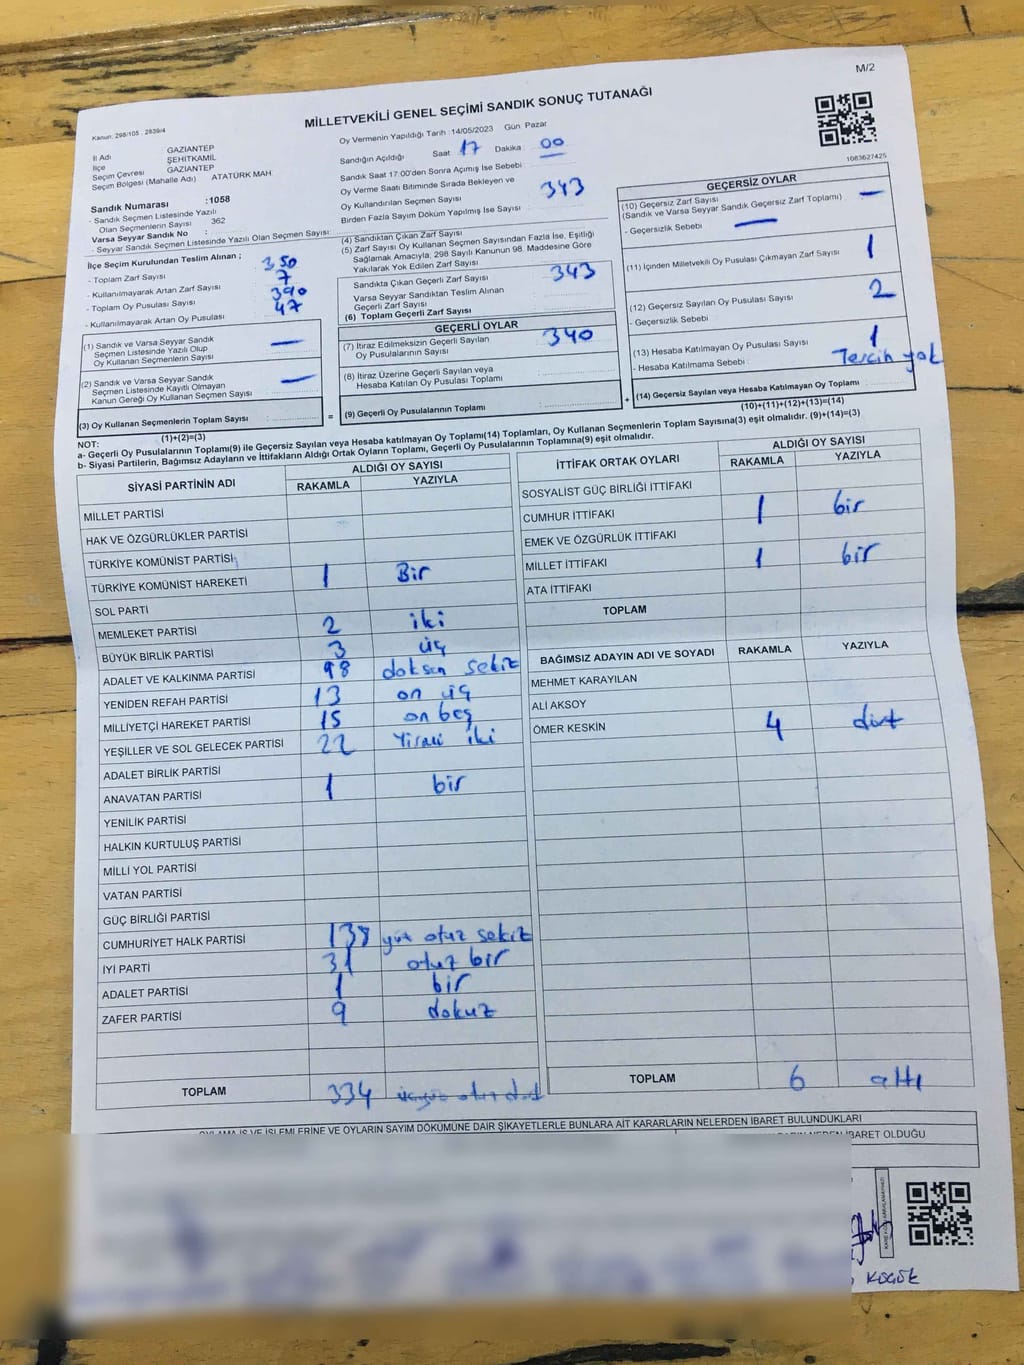 M/2
MİLLETVEKİLİ GENEL SEÇİMİ SANDIK SONUÇ TUTANAĞI
Kanun: 298/105 . 2839/4
İl Adı : GAZİANTEP
İlçe : ŞEHİTKAMİL
Seçim Çevresi : GAZİANTEP
Seçim Bölgesi (Mahalle Adı) ATATÜRK MAH
Sandık Numarası :1058
- Sandık Seçmen Listesinde Yazılı
Olan Seçmenlerin Sayısı : 362
Varsa Seyyar Sandık No :
- Seyyar Sandık Seçmen Listesinde Yazılı Olan Seçmen Sayısı:
İlçe Seçim Kurulundan Teslim Alınan ;
- Toplam Zarf Sayısı : 350
- Kullanılmayarak Artan Zarf Sayısı : 7
- Toplam Oy Pusulası Sayısı : 390
- Kullanılmayarak Artan Oy Pusulası : 47
(1) Sandık ve Varsa Seyyar Sandık
Seçmen Listesinde Yazılı Olup
Oy Kullanan Seçmenlerin Sayısı : —
(2) Sandık ve Varsa Seyyar Sandık
Seçmen Listesinde Kayıtlı Olmayan
Kanun Gereği Oy Kullanan Seçmen Sayısı : —
(3) Oy Kullanan Seçmenlerin Toplam Sayısı :
(1)+(2)=(3)
Oy Vermenin Yapıldığı Tarih :14/05/2023 Gün: Pazar
Sandığın Açıldığı Saat : 17 Dakika : 00
Sandık Saat 17.00'den Sonra Açımış İse Sebebi :
Oy Verme Saati Bitiminde Sırada Bekleyen ve
Oy Kullandırılan Seçmen Sayısı : 343
Birden Fazla Sayım Döküm Yapılmış İse Sayısı :
(4) Sandıktan Çıkan Zarf Sayısı
(5) Zarf Sayısı Oy Kullanan Seçmen Sayısından Fazla İse, Eşitliği
Sağlamak Amacıyla, 298 Sayılı Kanunun 98. Maddesine Göre
Yakılarak Yok Edilen Zarf Sayısı
Sandıkta Çıkan Geçerli Zarf Sayısı : 343
Varsa Seyyar Sandıktan Teslim Alınan
Geçerli Zarf Sayısı
(6) Toplam Geçerli Zarf Sayısı
GEÇERLİ OYLAR
(7) İtiraz Edilmeksizin Geçerli Sayılan
Oy Pusulalarının Sayısı : 340
(8) İtiraz Üzerine Geçerli Sayılan veya
Hesaba Katılan Oy Pusulası Toplamı :
= (9) Geçerli Oy Pusulalarının Toplamı :
1083627425
GEÇERSİZ OYLAR
(10) Geçersiz Zarf Sayısı : —
(Sandık ve Varsa Seyyar Sandık Geçersiz Zarf Toplamı)
- Geçersizlik Sebebi : —
(11) İçinden Milletvekili Oy Pusulası Çıkmayan Zarf Sayısı : 1
(12) Geçersiz Sayılan Oy Pusulası Sayısı : 2
- Geçersizlik Sebebi :
(13) Hesaba Katılmayan Oy Pusulası Sayısı : 1
- Hesaba Katılmama Sebebi : Tercih yok
+ (14) Geçersiz Sayılan veya Hesaba Katılmayan Oy Toplamı :
(10)+(11)+(12)+(13)=(14)
NOT:
a- Geçerli Oy Pusulalarının Toplamı(9) ile Geçersiz Sayılan veya Hesaba katılmayan Oy Toplamı(14) Toplamları, Oy Kullanan Seçmenlerin Toplam Sayısına(3) eşit olmalıdır. (9)+(14)=(3)
b- Siyasi Partilerin, Bağımsız Adayların ve İttifakların Aldığı Ortak Oyların Toplamı, Geçerli Oy Pusulalarının Toplamına(9) eşit olmalıdır.
SİYASİ PARTİNİN ADI ALDIĞI OY SAYISI
RAKAMLA YAZIYLA
MİLLET PARTİSİ
HAK VE ÖZGÜRLÜKLER PARTİSİ
TÜRKİYE KOMÜNİST PARTİSİ
TÜRKİYE KOMÜNİST HAREKETİ 1 Bir
SOL PARTİ
MEMLEKET PARTİSİ 2 iki
BÜYÜK BİRLİK PARTİSİ 3 üç
ADALET VE KALKINMA PARTİSİ 98 doksan sekiz
YENİDEN REFAH PARTİSİ 13 on üç
MİLLİYETÇİ HAREKET PARTİSİ 15 on beş
YEŞİLLER VE SOL GELECEK PARTİSİ 22 Yirmi iki
ADALET BİRLİK PARTİSİ
ANAVATAN PARTİSİ 1 bir
YENİLİK PARTİSİ
HALKIN KURTULUŞ PARTİSİ
MİLLİ YOL PARTİSİ
VATAN PARTİSİ
GÜÇ BİRLİĞİ PARTİSİ
CUMHURİYET HALK PARTİSİ 138 yüz otuz sekiz
İYİ PARTİ 31 otuz bir
ADALET PARTİSİ 1 bir
ZAFER PARTİSİ 9 dokuz
TOPLAM 334 üçyüz otuz dört
İTTİFAK ORTAK OYLARI ALDIĞI OY SAYISI
RAKAMLA YAZIYLA
SOSYALİST GÜÇ BİRLİĞİ İTTİFAKI
CUMHUR İTTİFAKI 1 bir
EMEK VE ÖZGÜRLÜK İTTİFAKI
MİLLET İTTİFAKI 1 bir
ATA İTTİFAKI
TOPLAM
BAĞIMSIZ ADAYIN ADI VE SOYADI RAKAMLA YAZIYLA
MEHMET KARAYILAN
ALİ AKSOY
ÖMER KESKİN 4 dört
TOPLAM 6 altı
OYLAMA İŞ VE İŞLEMLERİNE VE OYLARIN SAYIM DÖKÜMÜNE DAİR ŞİKAYETLERLE BUNLARA AİT KARARLARIN NELERDEN İBARET BULUNDUKLARI
NEDEN İBARET OLDUĞU